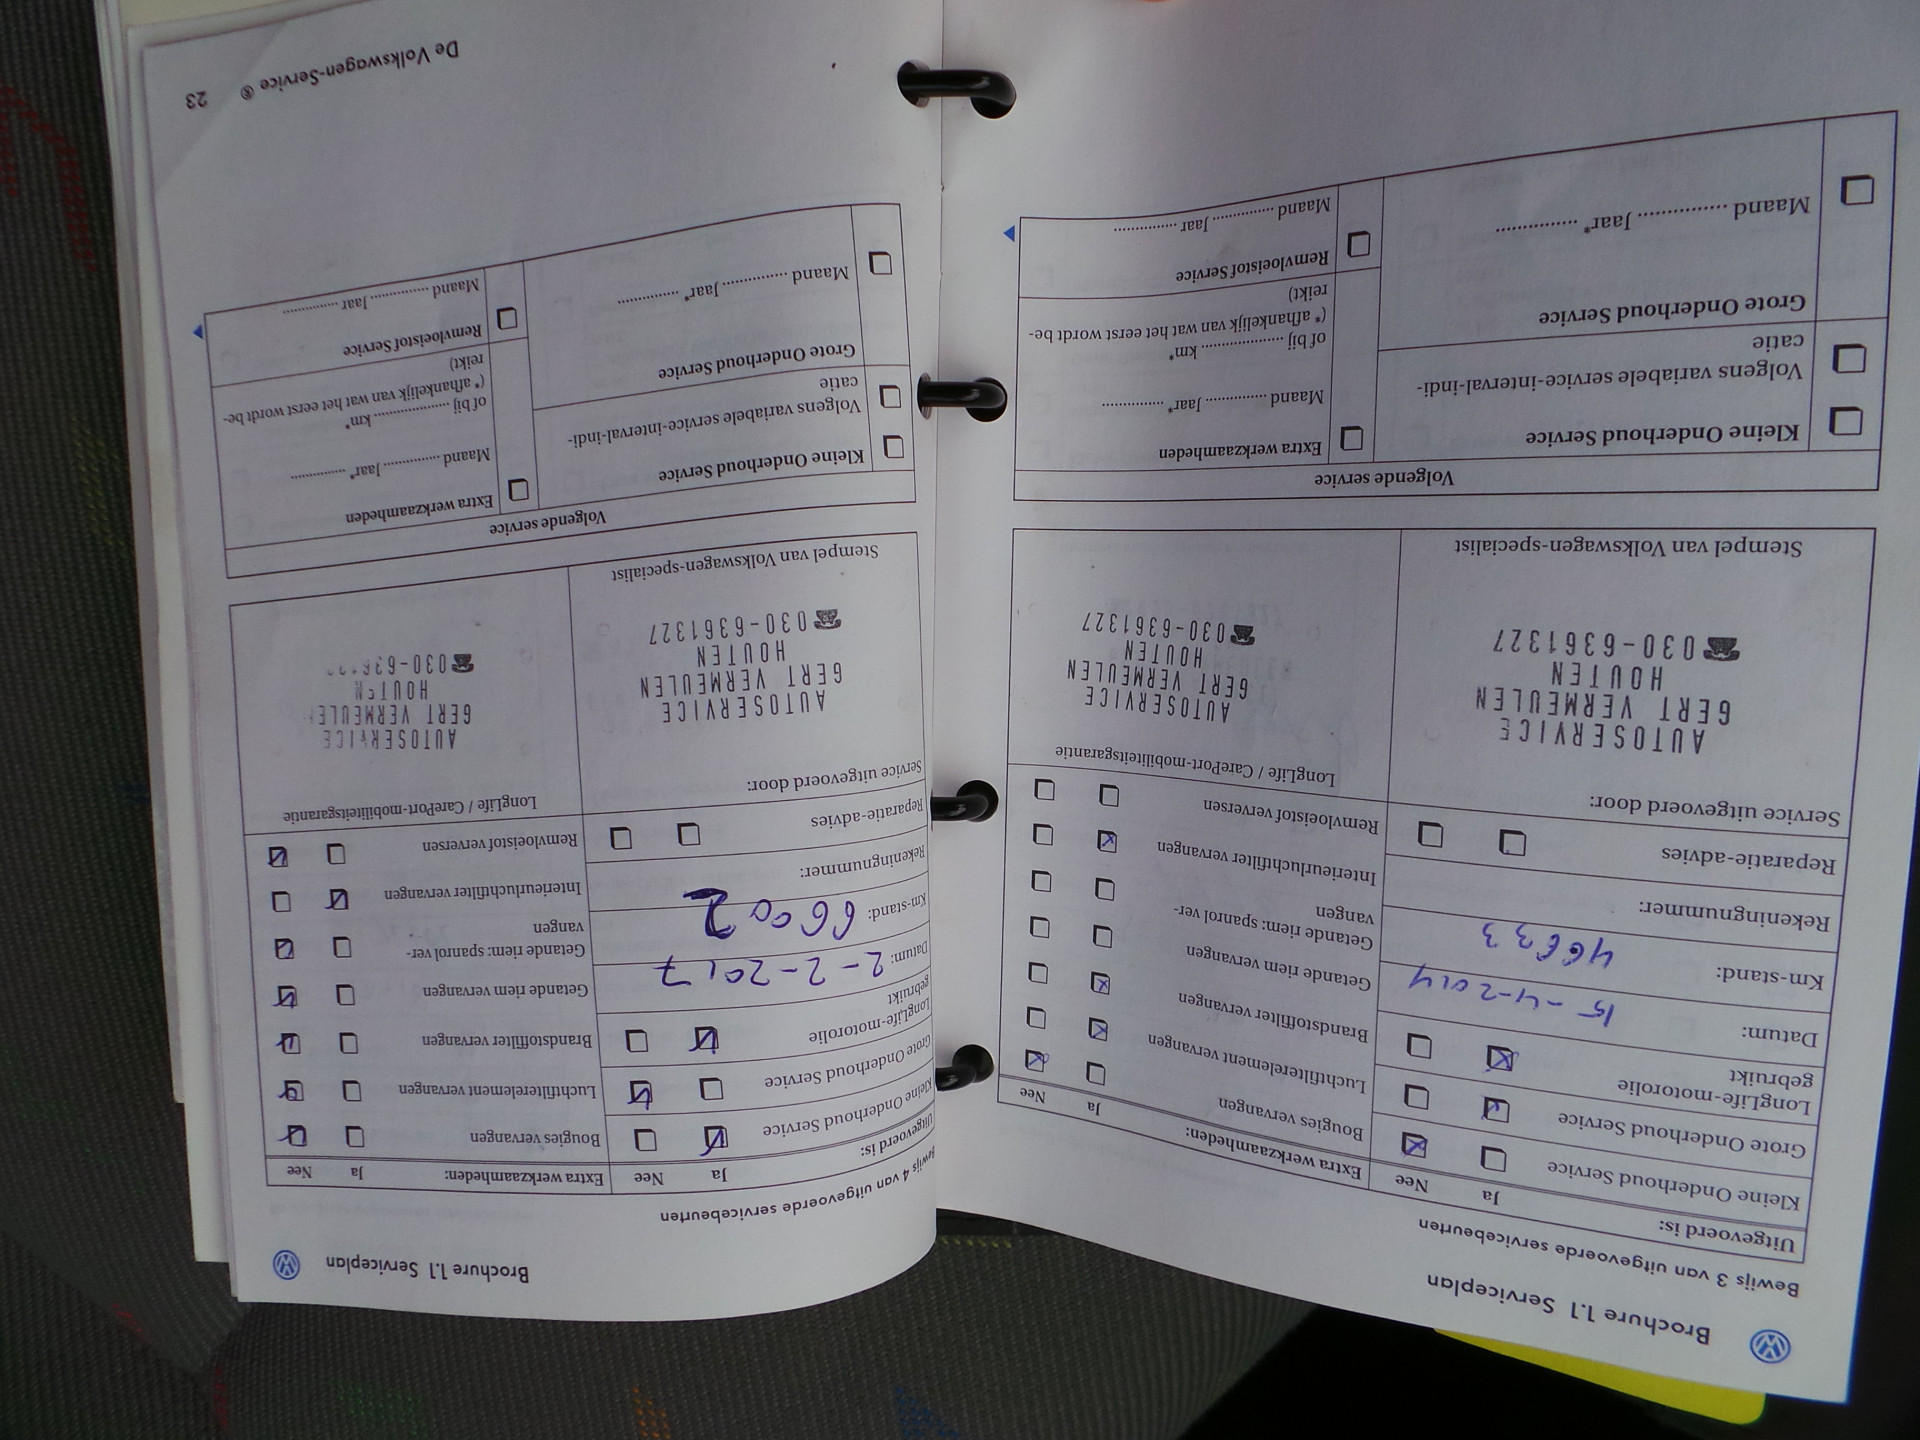 Brochure 1.1 Serviceplan
Bewijs 3 van uitgevoerde servicebeurten
Uitgevoerd is: Ja Nee
Kleine Onderhoud Service
Grote Onderhoud Service
LongLife-motorolie
gebruikt
Datum: 15-4-2014
Km-stand: 46633
Rekeningnummer:
Reparatie-advies
Service uitgevoerd door:
AUTOSERVICE
GERT VERMEULEN
HOUTEN
☎030-6361327
Stempel van Volkswagen-specialist
Extra werkzaamheden: Ja Nee
Bougies vervangen
Luchtfilterelement vervangen
Brandstoffilter vervangen
Getande riem vervangen
Getande riem: spanrol ver-
vangen
Interieurluchtfilter vervangen
Remvloeistof verversen
LongLife / CarePort-mobiliteitsgarantie
AUTOSERVICE
GERT VERMEULEN
HOUTEN
☎030-6361327
Volgende service
Kleine Onderhoud Service
Volgens variabele service-interval-indi-
catie
Grote Onderhoud Service
Maand ................ Jaar* ...............
Extra werkzaamheden
Maand ............... Jaar* ...............
of bij .................... km*
(* afhankelijk van wat het eerst wordt be-
reikt)
Remvloeistof Service
Maand ............... Jaar ...............
Brochure 1.1 Serviceplan
Bewijs 4 van uitgevoerde servicebeurten
Uitgevoerd is: Ja Nee
Kleine Onderhoud Service
Grote Onderhoud Service
LongLife-motorolie
gebruikt
Datum: 2-2-2017
Km-stand: 66002
Rekeningnummer:
Reparatie-advies
Service uitgevoerd door:
AUTOSERVICE
GERT VERMEULEN
HOUTEN
☎030-6361327
Stempel van Volkswagen-specialist
Extra werkzaamheden: Ja Nee
Bougies vervangen
Luchtfilterelement vervangen
Brandstoffilter vervangen
Getande riem vervangen
Getande riem: spanrol ver-
vangen
Interieurluchtfilter vervangen
Remvloeistof verversen
LongLife / CarePort-mobiliteitsgarantie
AUTOSERVICE
GERT VERMEULEN
HOUTEN
Volgende service
Kleine Onderhoud Service
Volgens variabele service-interval-indi-
catie
Grote Onderhoud Service
Maand ............... Jaar* ...............
Extra werkzaamheden
Maand ............... Jaar* ...............
of bij .................... km*
(* afhankelijk van wat het eerst wordt be-
reikt)
Remvloeistof Service
Maand ............... Jaar ...............
De Volkswagen-Service ® 23